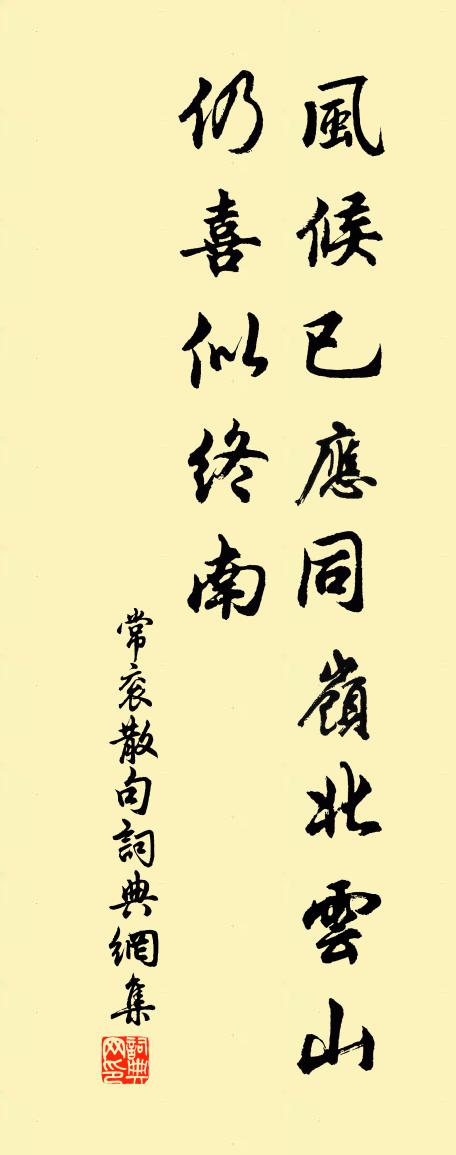 風候已應同嶺北雲山
仍喜似終南
常衮散句詞典網集
詞典网印